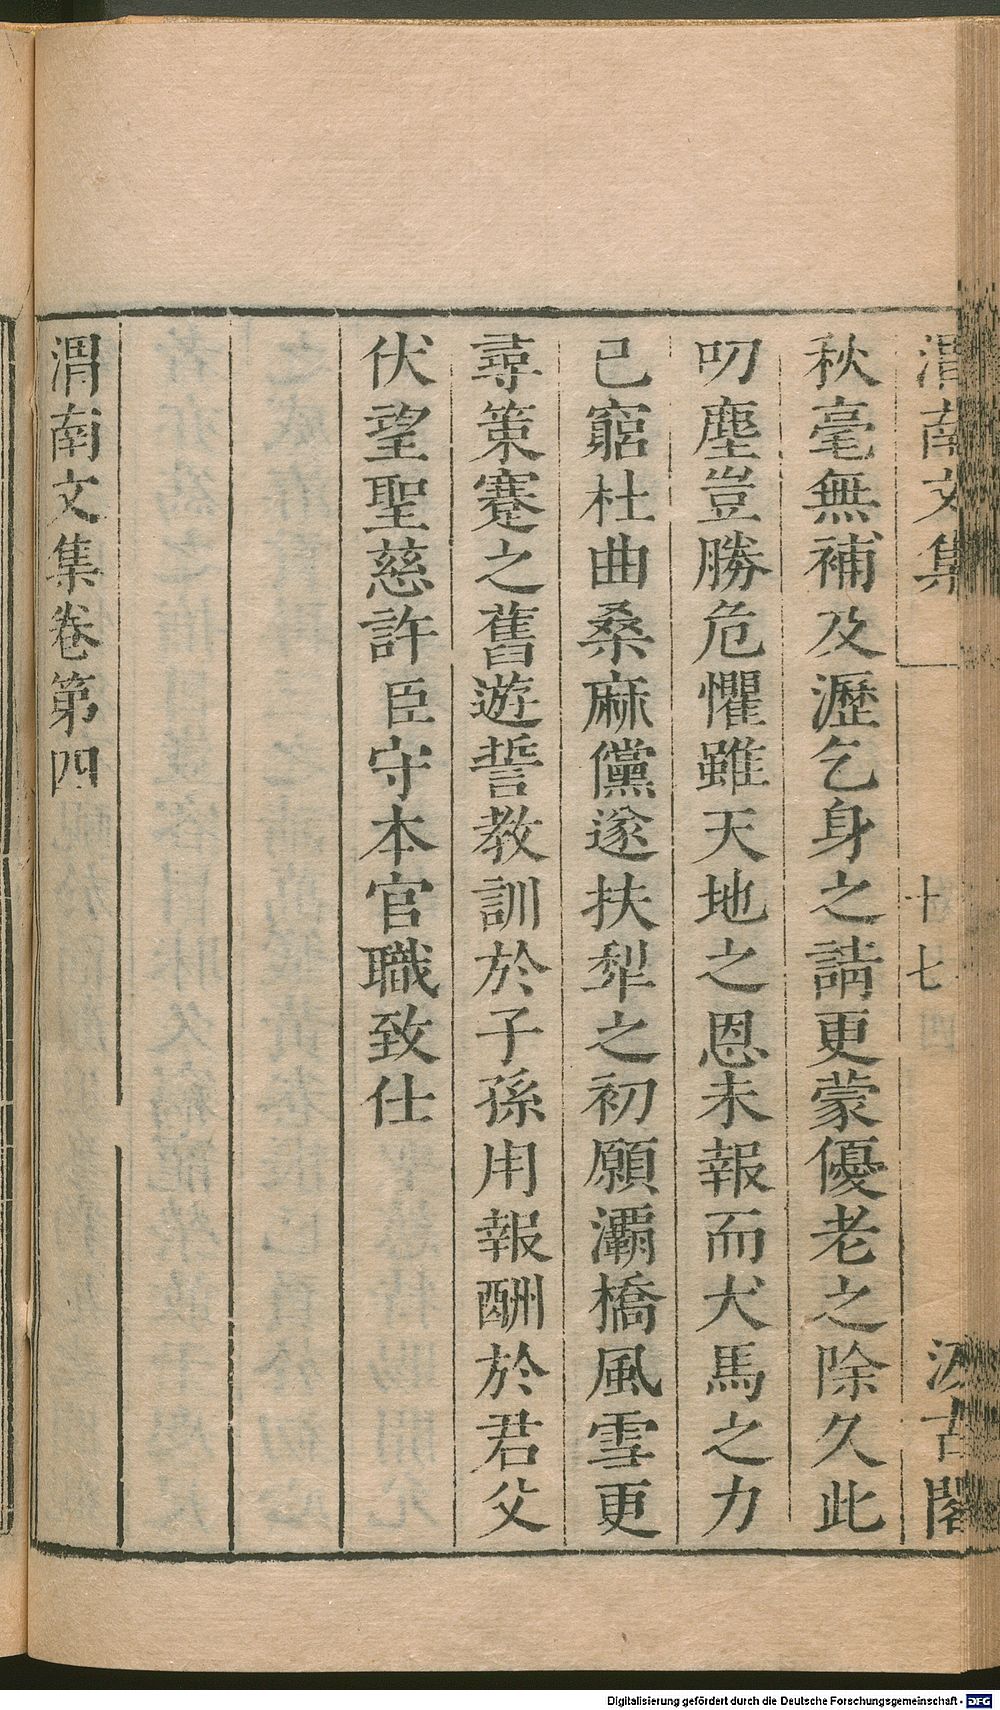 渭南文集
十七
汲古閣
秋毫無補及瀝乞身之請更蒙優老之除久此
叨塵豈勝危懼雖天地之恩未報而犬馬之力
已窮杜曲桑麻儻遂扶犁之初願灞橋風雪更
尋策蹇之舊遊誓教訓於子孫用報酬於君父
伏望聖慈許臣守本官職致仕
渭南文集卷第四
Digitalisierung gefördert durch die Deutsche Forschungsgemeinschaft - DFG